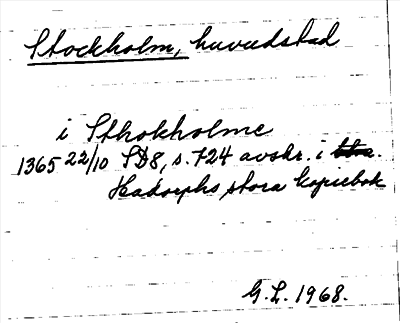 Stockholm, huvudstad
i Sthokholme
1365 22/10 SD8, s. 724 avskr. i
Hadorphs stora kopiebok
G.L. 1968.